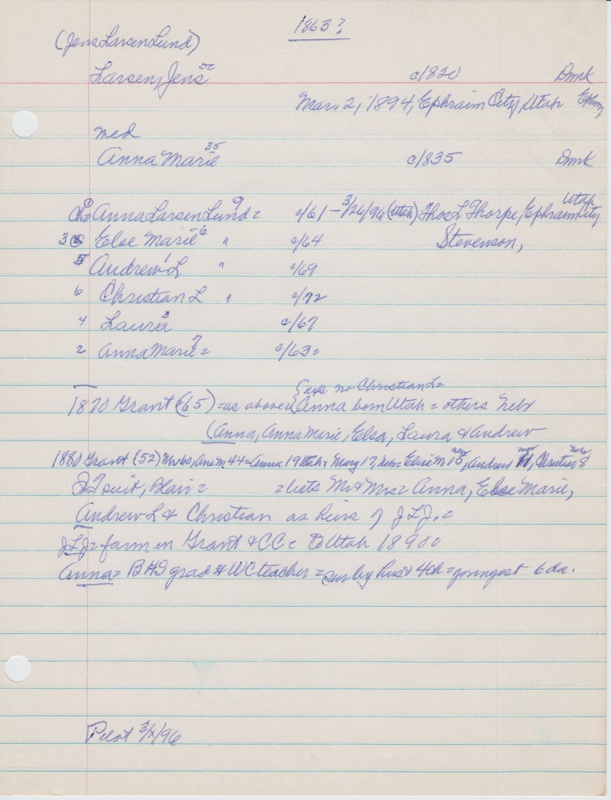 1863?
(Jens Larsen Lund)
Larsen, Jens c/1820 Dmk
Mar. 2, 1894, Ephraim City, Utah
med
Anna Marie 35 c/1835 Dmk
Anna Larsen Lund 9 = c/61 - 3/26/96 (Utah) Thos L Thorpe, Ephraim City Utah
3 Else Marie 6 " c/64 Stevenson,
5 Andrew L 1 " c/69
6 Christian L " c/72
4 Laura 3 c/67
2 Anna Marie 7 = c/63 =
no Christian L =
1870 Grant (65) = as above Anna born Utah = others Nebr
(Anna, Anna Marie, Elsa, Laura & Andrew
1880 Grant (52) 60, 44 = Anna 19 Utah = Mary 17, Elsie M 15, Andrew, Christian 8
suit, Blair = = lists Mr & Mrs = Anna, Else Marie,
Andrew L & Christian as heirs of J L J. =
JLJ = farm in Grant & CC = to Utah 1890 =
Anna = BHS grad & WC teacher = sur by hus & 4ch = youngest 6 da.
Pilot 3/ /96